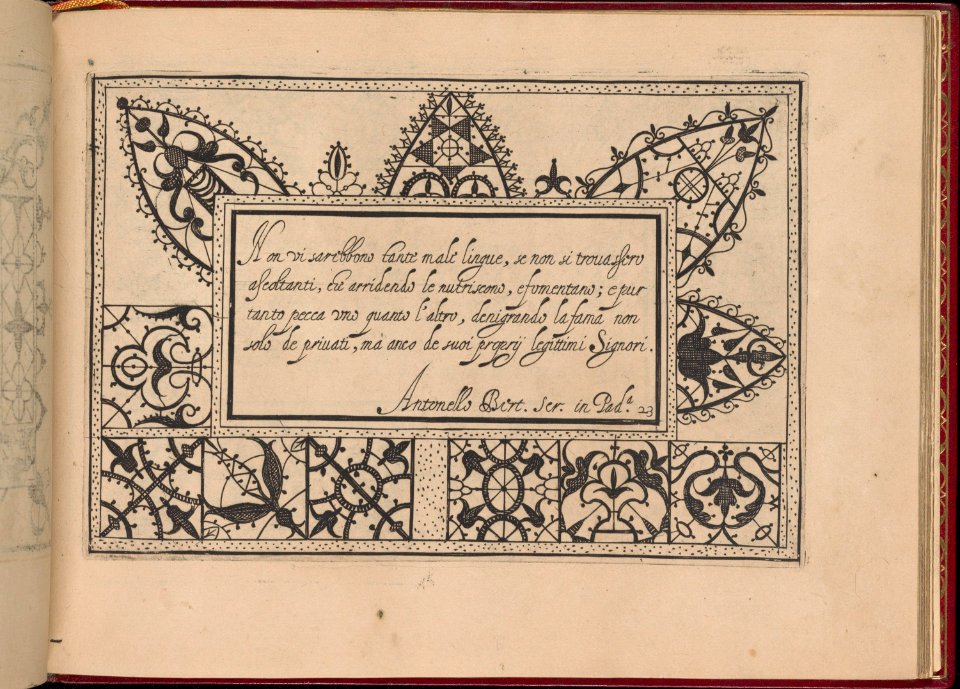 Non vi sarebbono tante male lingue, se non si trovassero
ascoltanti, che arridendo le nutriscono, e fomentano; e pur
tanto pecca vno quanto l'altro, denigrando la fama non
solo de priuati, mà anco de suoi proprij legittimi Signori.
Antonello Bert. Scr. in Pad.ª 23